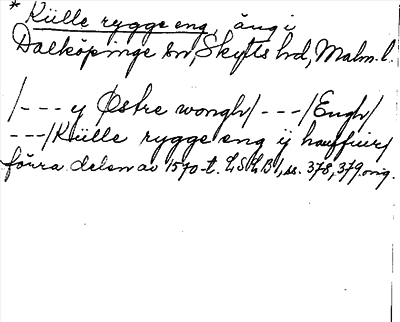 * Külle rygge eng, äng i
Dalköpinge sn, Skytts hd, Malm. l.
/--- y Østre wongh/ ---/Engh/
---/Külle rygge eng ÿ hauffuer/
förra delen av 1570-t. LSLB 1, ss. 378, 379. orig.